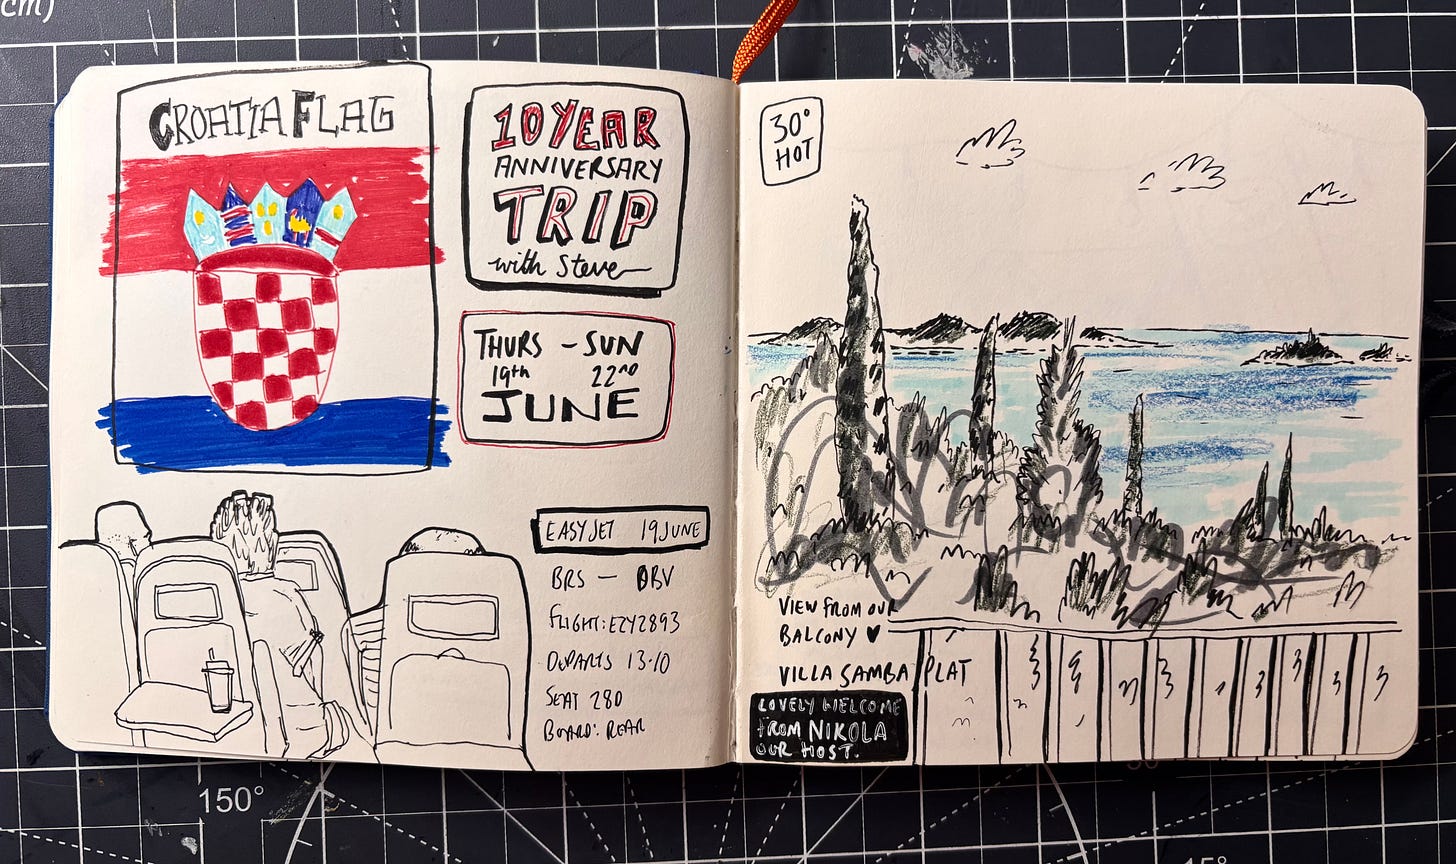 cm)
CROATIA FLAG
10 YEAR
ANNIVERSARY
TRIP
with Steve
THURS - SUN
19th 22nd
JUNE
EASYJET 19 JUNE
BRS — DBV
FLIGHT: EZY2893
DEPARTS 13·10
SEAT 28D
BOARD: REAR
30°
HOT
VIEW FROM OUR
BALCONY ♥
VILLA SAMBA PLAT
LOVELY WELCOME
FROM NIKOLA
OUR HOST.
150°